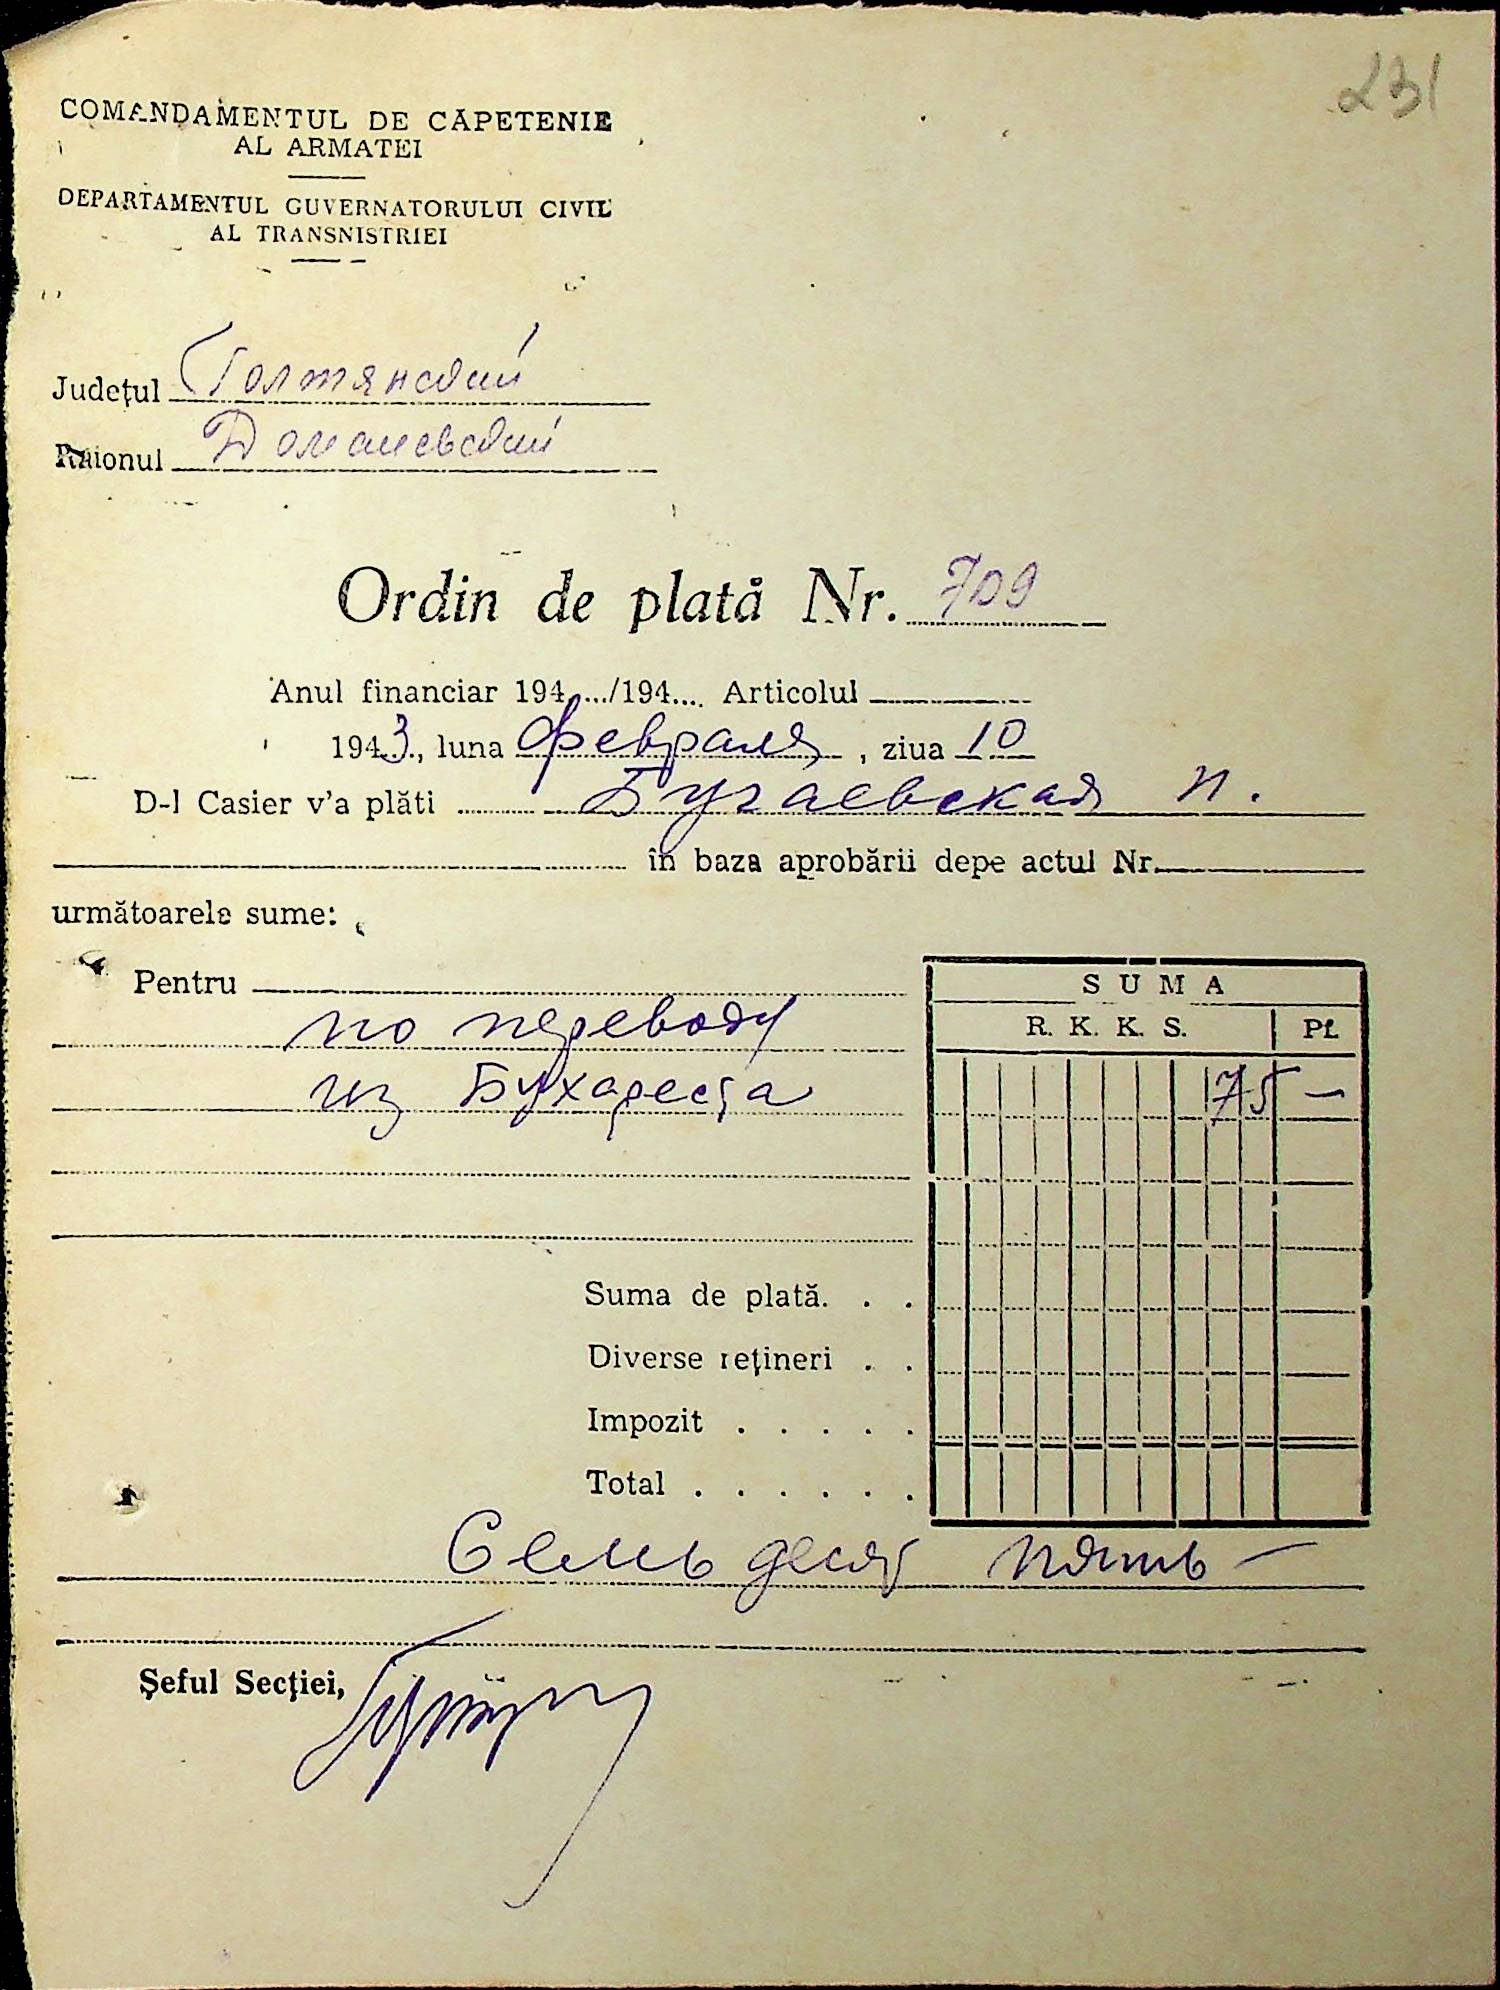 231
COMANDAMENTUL DE CĂPETENIE
AL ARMATEI
DEPARTAMENTUL GUVERNATORULUI CIVIL
AL TRANSNISTRIEI
Județul Голтянский
Raionul Доманевский
Ordin de plată Nr. 709
Anul financiar 194..../194.... Articolul
1943, luna февраля, ziua 10
D-l Casier v'a plăti Бугаевская п.
în baza aprobării depe actul Nr.
următoarele sume:
Pentru
по переводу
из Бухареста
SUMA
R. K. K. S. Pf.
75 —
Suma de plată. . .
Diverse rețineri . .
Impozit . . . . .
Total . . . . . .
Семьдесят пять —
Șeful Secției,